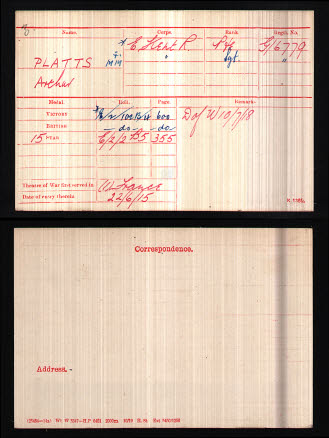 Name. Corps. Rank Regtl. No.
* E. Kent R. Pte G/6779
PLATTS " Sgt. "
Arthur
Medal. Roll. Page. Remarks.
VICTORY 600 D of W 10/7/18
BRITISH - do - - do -
15 STAR E/2/2 B5 355
Theatre of War first served in France
Date of entry therein 22/6/15
K 1380.
Correspondence.
Address.-